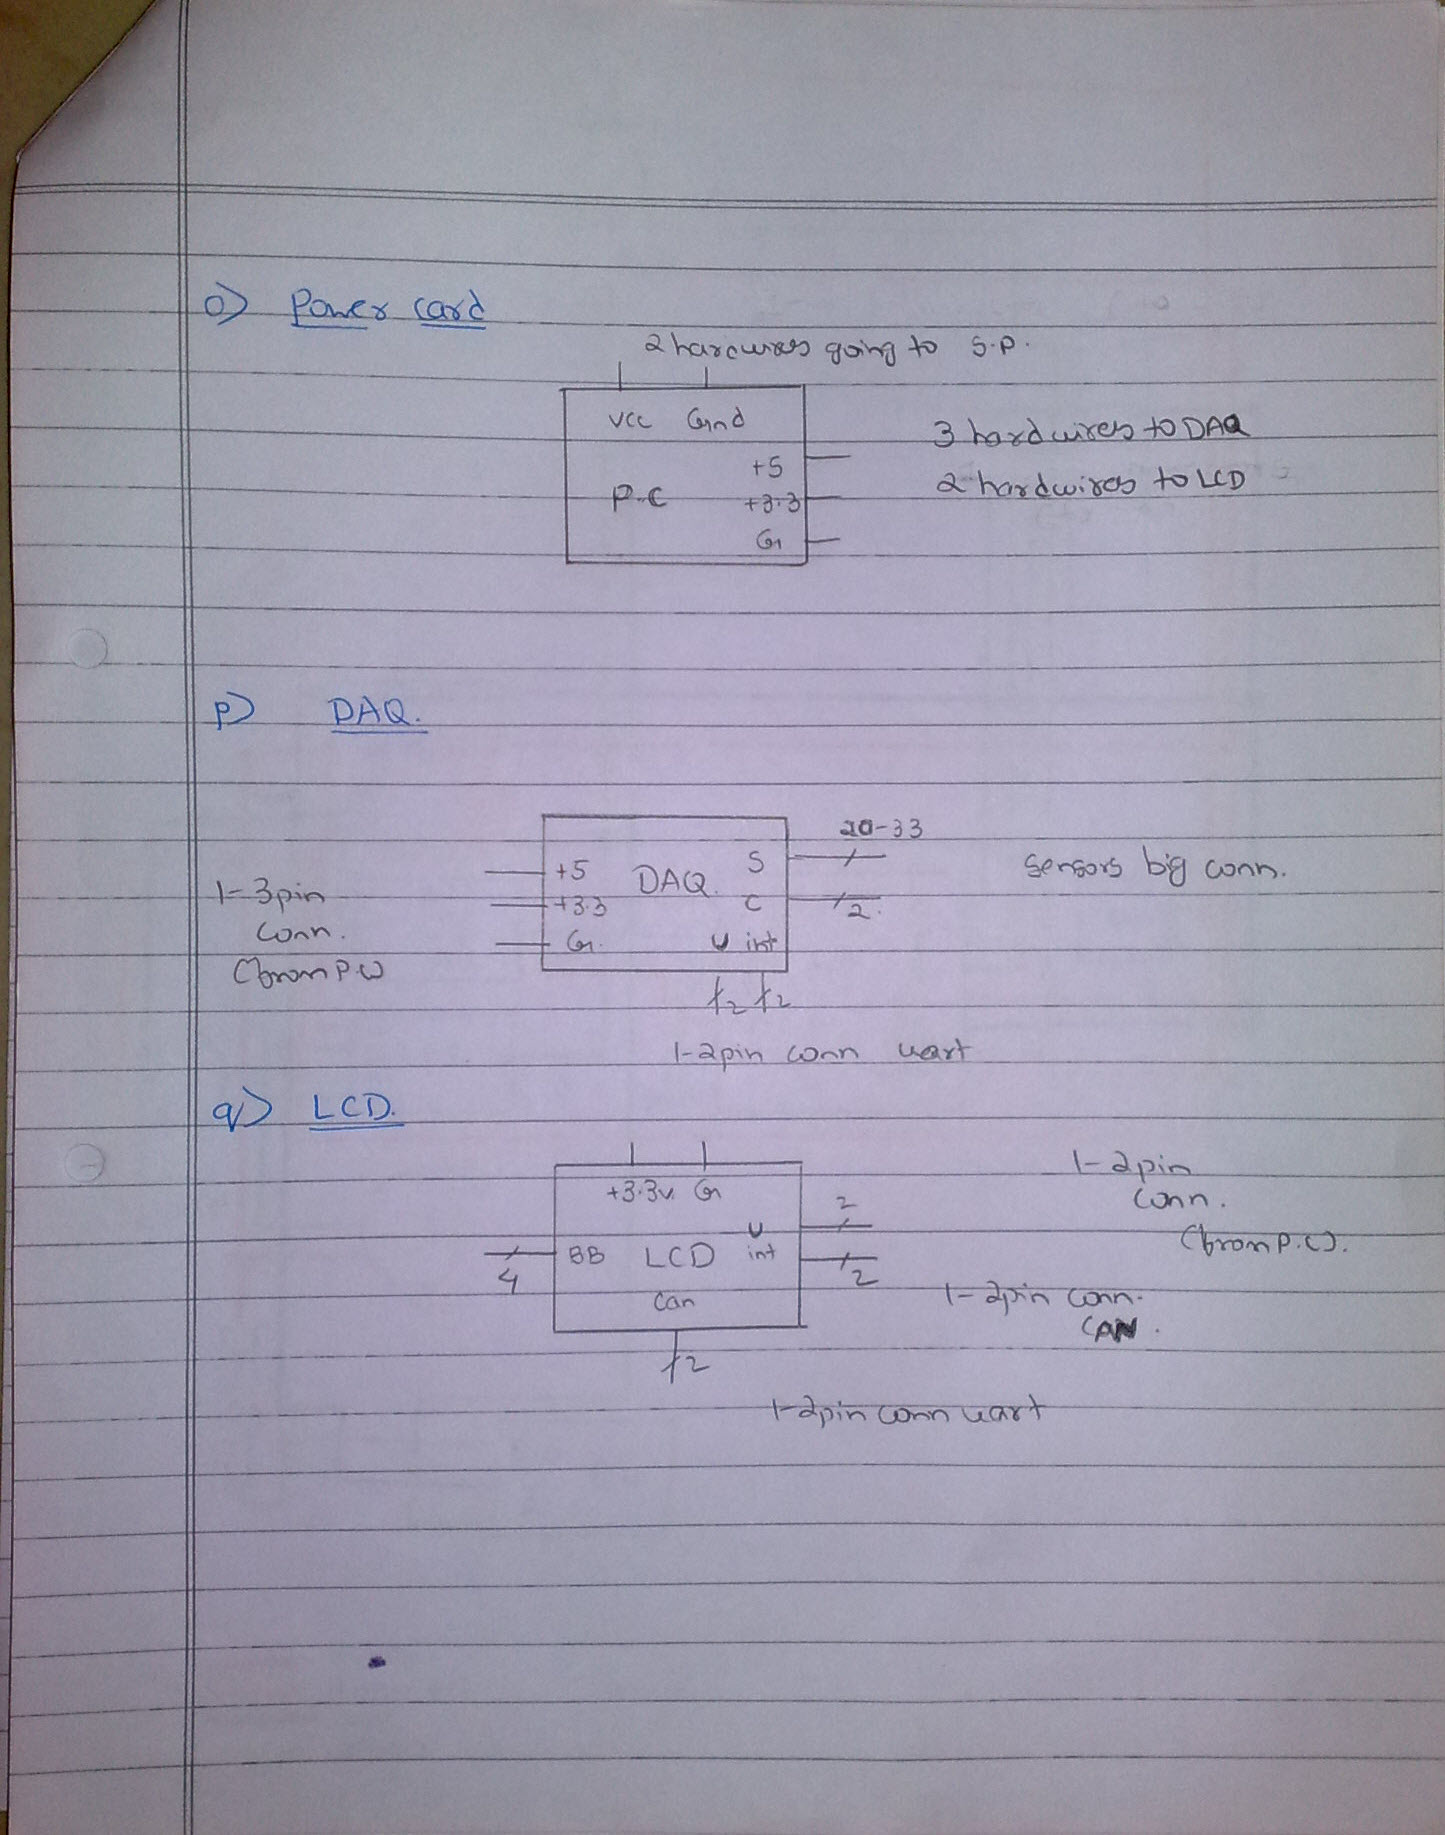 o) Power card
2 hardwires going to S.P.
Vcc Gnd
+5
P.C +3.3
G
3 hardwires to DAQ
2 hardwires to LCD
p) DAQ.
20-33
+5 DAQ. S
+3.3 C
G. U int
2.
sensors big conn.
1-3pin
conn.
(from P.C)
2 2
1-2pin conn uart
q) LCD.
+3.3v. G
U
BB LCD int
Can
4
2
2
2
1-2pin
conn.
(from P.C).
1-2pin conn.
CAN.
1-2pin conn uart